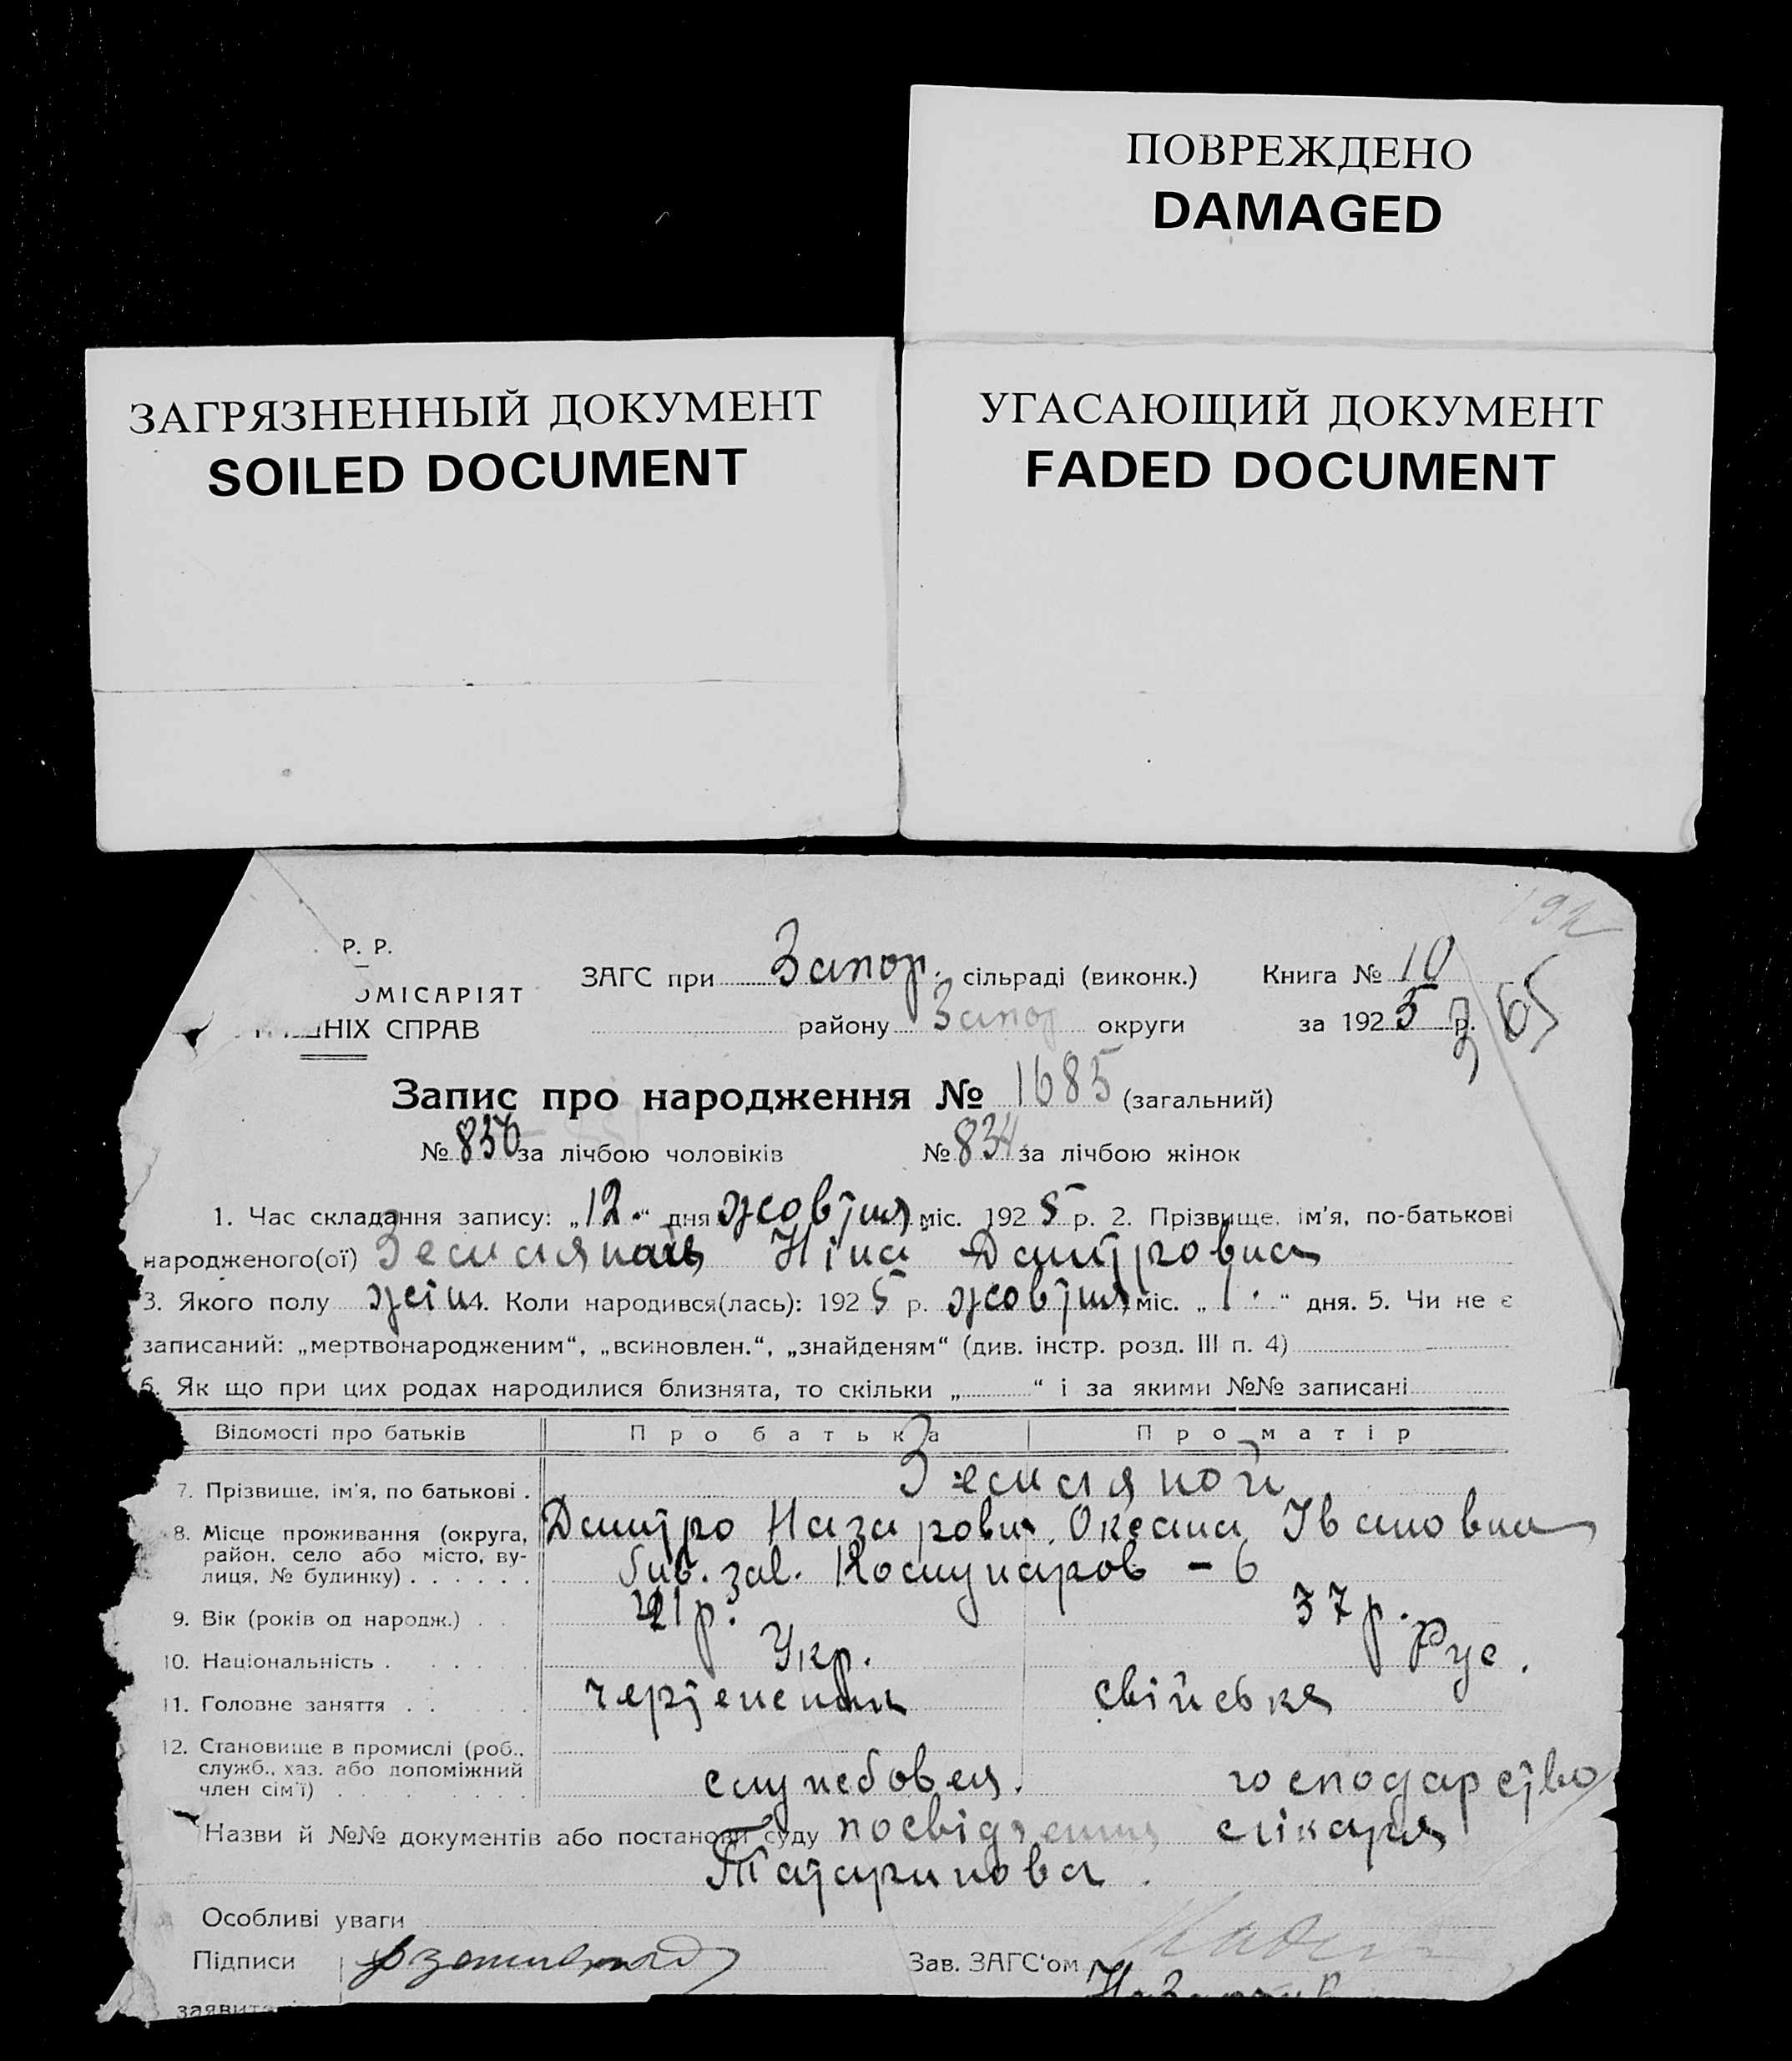 ПОВРЕЖДЕНО
DAMAGED
ЗАГРЯЗНЕННЫЙ ДОКУМЕНТ
SOILED DOCUMENT
УГАСАЮЩИЙ ДОКУМЕНТ
FADED DOCUMENT
192
Р. Р.
ОМІСАРІЯТ
ШНІХ СПРАВ
ЗАГС при Запор. сільраді (виконк.) Книга № 10
району Запор округи за 1925 р.
Запис про народження № 1685 (загальний)
№ 850 за лічбою чоловіків № 834 за лічбою жінок
1. Час складання запису: „12.“ дня жовтня міс. 1925 р. 2. Прізвище, ім'я, по-батькові
народженого(ої) Земляная Ніна Дмитровна
3. Якого полу жін 4. Коли народився(лась): 1925 р. жовтня міс. „1.“ дня. 5. Чи не є
записаний: „мертвонародженим“, „всиновлен.“, „знайденям“ (див. інстр. розд. III п. 4)
6. Як що при цих родах народилися близнята, то скільки „ “ і за якими №№ записані
Відомості про батьків Про батька Про матір
7. Прізвище, ім'я, по батькові . Земляной
Дмитро Назарович Оксана Івановна
8. Місце проживання (округа,
район, село або місто, вулиця, № будинку) . . . . . . зав. Комунаров - 6
9. Вік (років од народж.) . . 41 р. 37 р.
10. Національність . Укр. Рус.
11. Головне заняття . . свійське
12. Становище в промислі (роб.,
служб., хаз. або допоміжний
член сім'ї) службовец. господарство
Назви й №№ документів або постанови суду посвідчення лікаря
Татаринова.
Особливі уваги
Підписи Зав. ЗАГС'ом